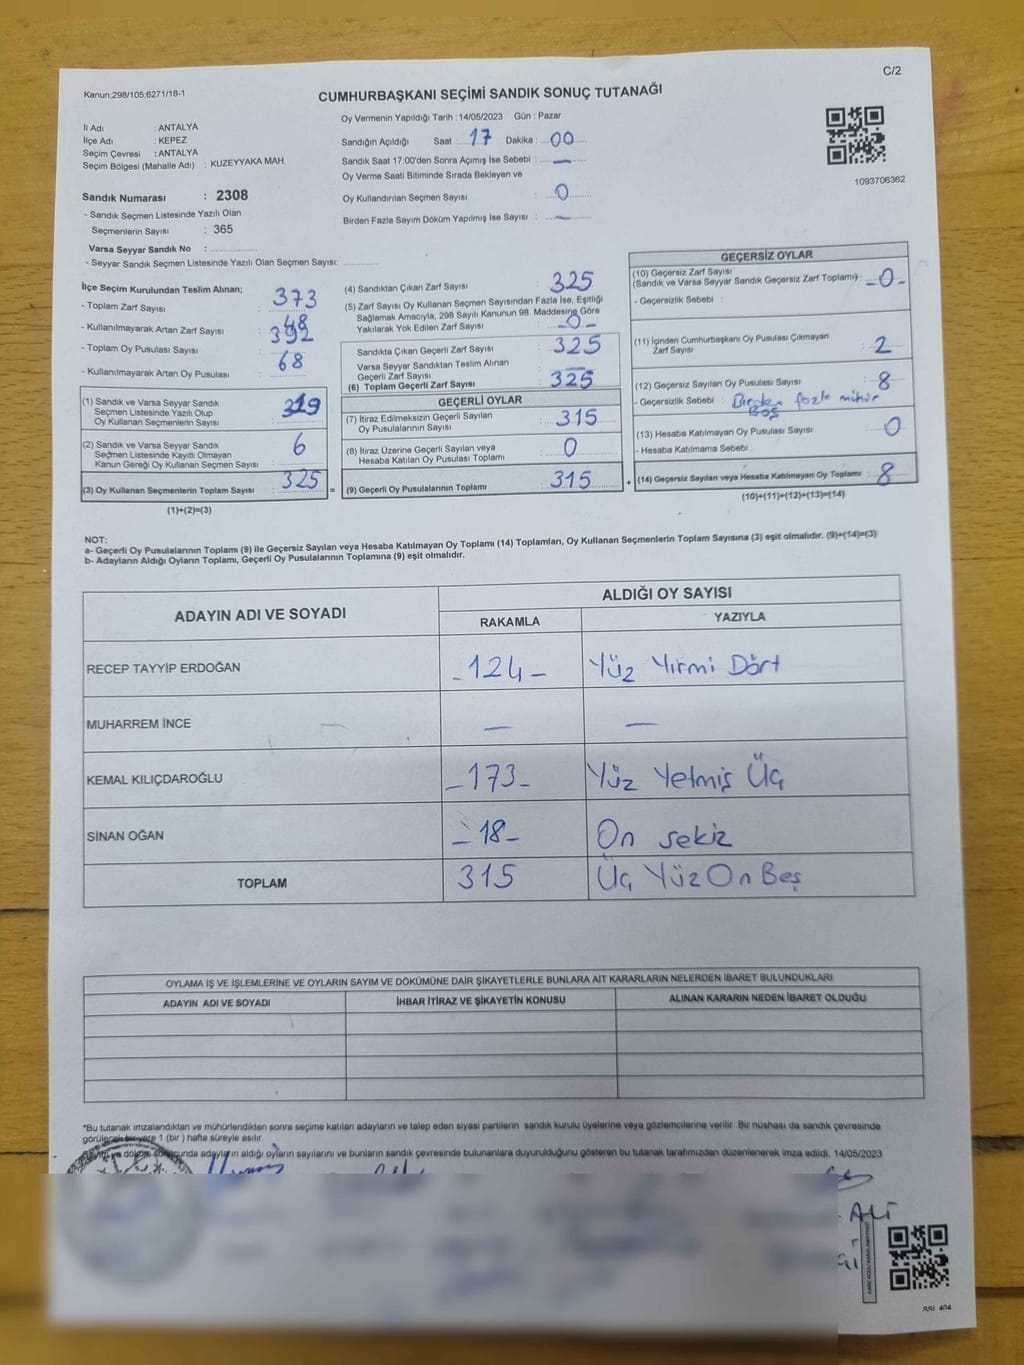 C/2
Kanun;298/105;6271/18-1
CUMHURBAŞKANI SEÇİMİ SANDIK SONUÇ TUTANAĞI
İl Adı : ANTALYA
İlçe Adı : KEPEZ
Seçim Çevresi : ANTALYA
Seçim Bölgesi (Mahalle Adı) : KUZEYYAKA MAH.
Sandık Numarası : 2308
- Sandık Seçmen Listesinde Yazılı Olan
Seçmenlerin Sayısı : 365
Varsa Seyyar Sandık No :
- Seyyar Sandık Seçmen Listesinde Yazılı Olan Seçmen Sayısı:
Oy Vermenin Yapıldığı Tarih : 14/05/2023 Gün : Pazar
Sandığın Açıldığı Saat : 17 Dakika : 00
Sandık Saat 17:00'den Sonra Açımış İse Sebebi : —
Oy Verme Saati Bitiminde Sırada Bekleyen ve
Oy Kullandırılan Seçmen Sayısı : 0
Birden Fazla Sayım Döküm Yapılmış İse Sayısı : —
1093706362
İlçe Seçim Kurulundan Teslim Alınan;
- Toplam Zarf Sayısı : 373
- Kullanılmayarak Artan Zarf Sayısı : 48
- Toplam Oy Pusulası Sayısı : 392
- Kullanılmayarak Artan Oy Pusulası : 68
(1) Sandık ve Varsa Seyyar Sandık
Seçmen Listesinde Yazılı Olup
Oy Kullanan Seçmenlerin Sayısı : 319
(2) Sandık ve Varsa Seyyar Sandık
Seçmen Listesinde Kayıtlı Olmayan
Kanun Gereği Oy Kullanan Seçmen Sayısı : 6
(3) Oy Kullanan Seçmenlerin Toplam Sayısı : 325
(1)+(2)=(3)
(4) Sandıktan Çıkan Zarf Sayısı : 325
(5) Zarf Sayısı Oy Kullanan Seçmen Sayısından Fazla İse, Eşitliği
Sağlamak Amacıyla, 298 Sayılı Kanunun 98. Maddesine Göre
Yakılarak Yok Edilen Zarf Sayısı : -0-
Sandıkta Çıkan Geçerli Zarf Sayısı : 325
Varsa Seyyar Sandıktan Teslim Alınan
Geçerli Zarf Sayısı
(6) Toplam Geçerli Zarf Sayısı : 325
GEÇERLİ OYLAR
(7) İtiraz Edilmeksizin Geçerli Sayılan
Oy Pusulalarının Sayısı : 315
(8) İtiraz Üzerine Geçerli Sayılan veya
Hesaba Katılan Oy Pusulası Toplamı : 0
= (9) Geçerli Oy Pusulalarının Toplamı : 315
GEÇERSİZ OYLAR
(10) Geçersiz Zarf Sayısı
(Sandık ve Varsa Seyyar Sandık Geçersiz Zarf Toplamı) : -0-
- Geçersizlik Sebebi :
(11) İçinden Cumhurbaşkanı Oy Pusulası Çıkmayan
Zarf Sayısı : 2
(12) Geçersiz Sayılan Oy Pusulası Sayısı : 8
- Geçersizlik Sebebi : Birden fazla mühür
Boş
(13) Hesaba Katılmayan Oy Pusulası Sayısı : 0
- Hesaba Katılmama Sebebi :
+ (14) Geçersiz Sayılan veya Hesaba Katılmayan Oy Toplamı : 8
(10)+(11)+(12)+(13)=(14)
NOT:
a- Geçerli Oy Pusulalarının Toplamı (9) ile Geçersiz Sayılan veya Hesaba Katılmayan Oy Toplamı (14) Toplamları, Oy Kullanan Seçmenlerin Toplam Sayısına (3) eşit olmalıdır. (9)+(14)=(3)
b- Adayların Aldığı Oyların Toplamı, Geçerli Oy Pusulalarının Toplamına (9) eşit olmalıdır.
ADAYIN ADI VE SOYADI ALDIĞI OY SAYISI
RAKAMLA YAZIYLA
RECEP TAYYİP ERDOĞAN -124- Yüz Yirmi Dört
MUHARREM İNCE — —
KEMAL KILIÇDAROĞLU -173- Yüz Yetmiş Üç
SİNAN OĞAN -18- On sekiz
TOPLAM 315 Üç Yüz On Beş
OYLAMA İŞ VE İŞLEMLERİNE VE OYLARIN SAYIM VE DÖKÜMÜNE DAİR ŞİKAYETLERLE BUNLARA AİT KARARLARIN NELERDEN İBARET BULUNDUKLARI
ADAYIN ADI VE SOYADI İHBAR İTİRAZ VE ŞİKAYETİN KONUSU ALINAN KARARIN NEDEN İBARET OLDUĞU
*Bu tutanak imzalandıktan ve mühürlendikten sonra seçime katılan adayların ve talep eden siyasi partilerin sandık kurulu üyelerine veya gözlemcilerine verilir. Bir nüshası da sandık çevresinde
görülecek bir yere 1 (bir) hafta süreyle asılır.
Sayım ve döküm sonucunda adayların aldığı oyların sayılarını ve bunların sandık çevresinde bulunanlara duyurulduğunu gösteren bu tutanak tarafımızdan düzenlenerek imza edildi. 14/05/2023
ALİ